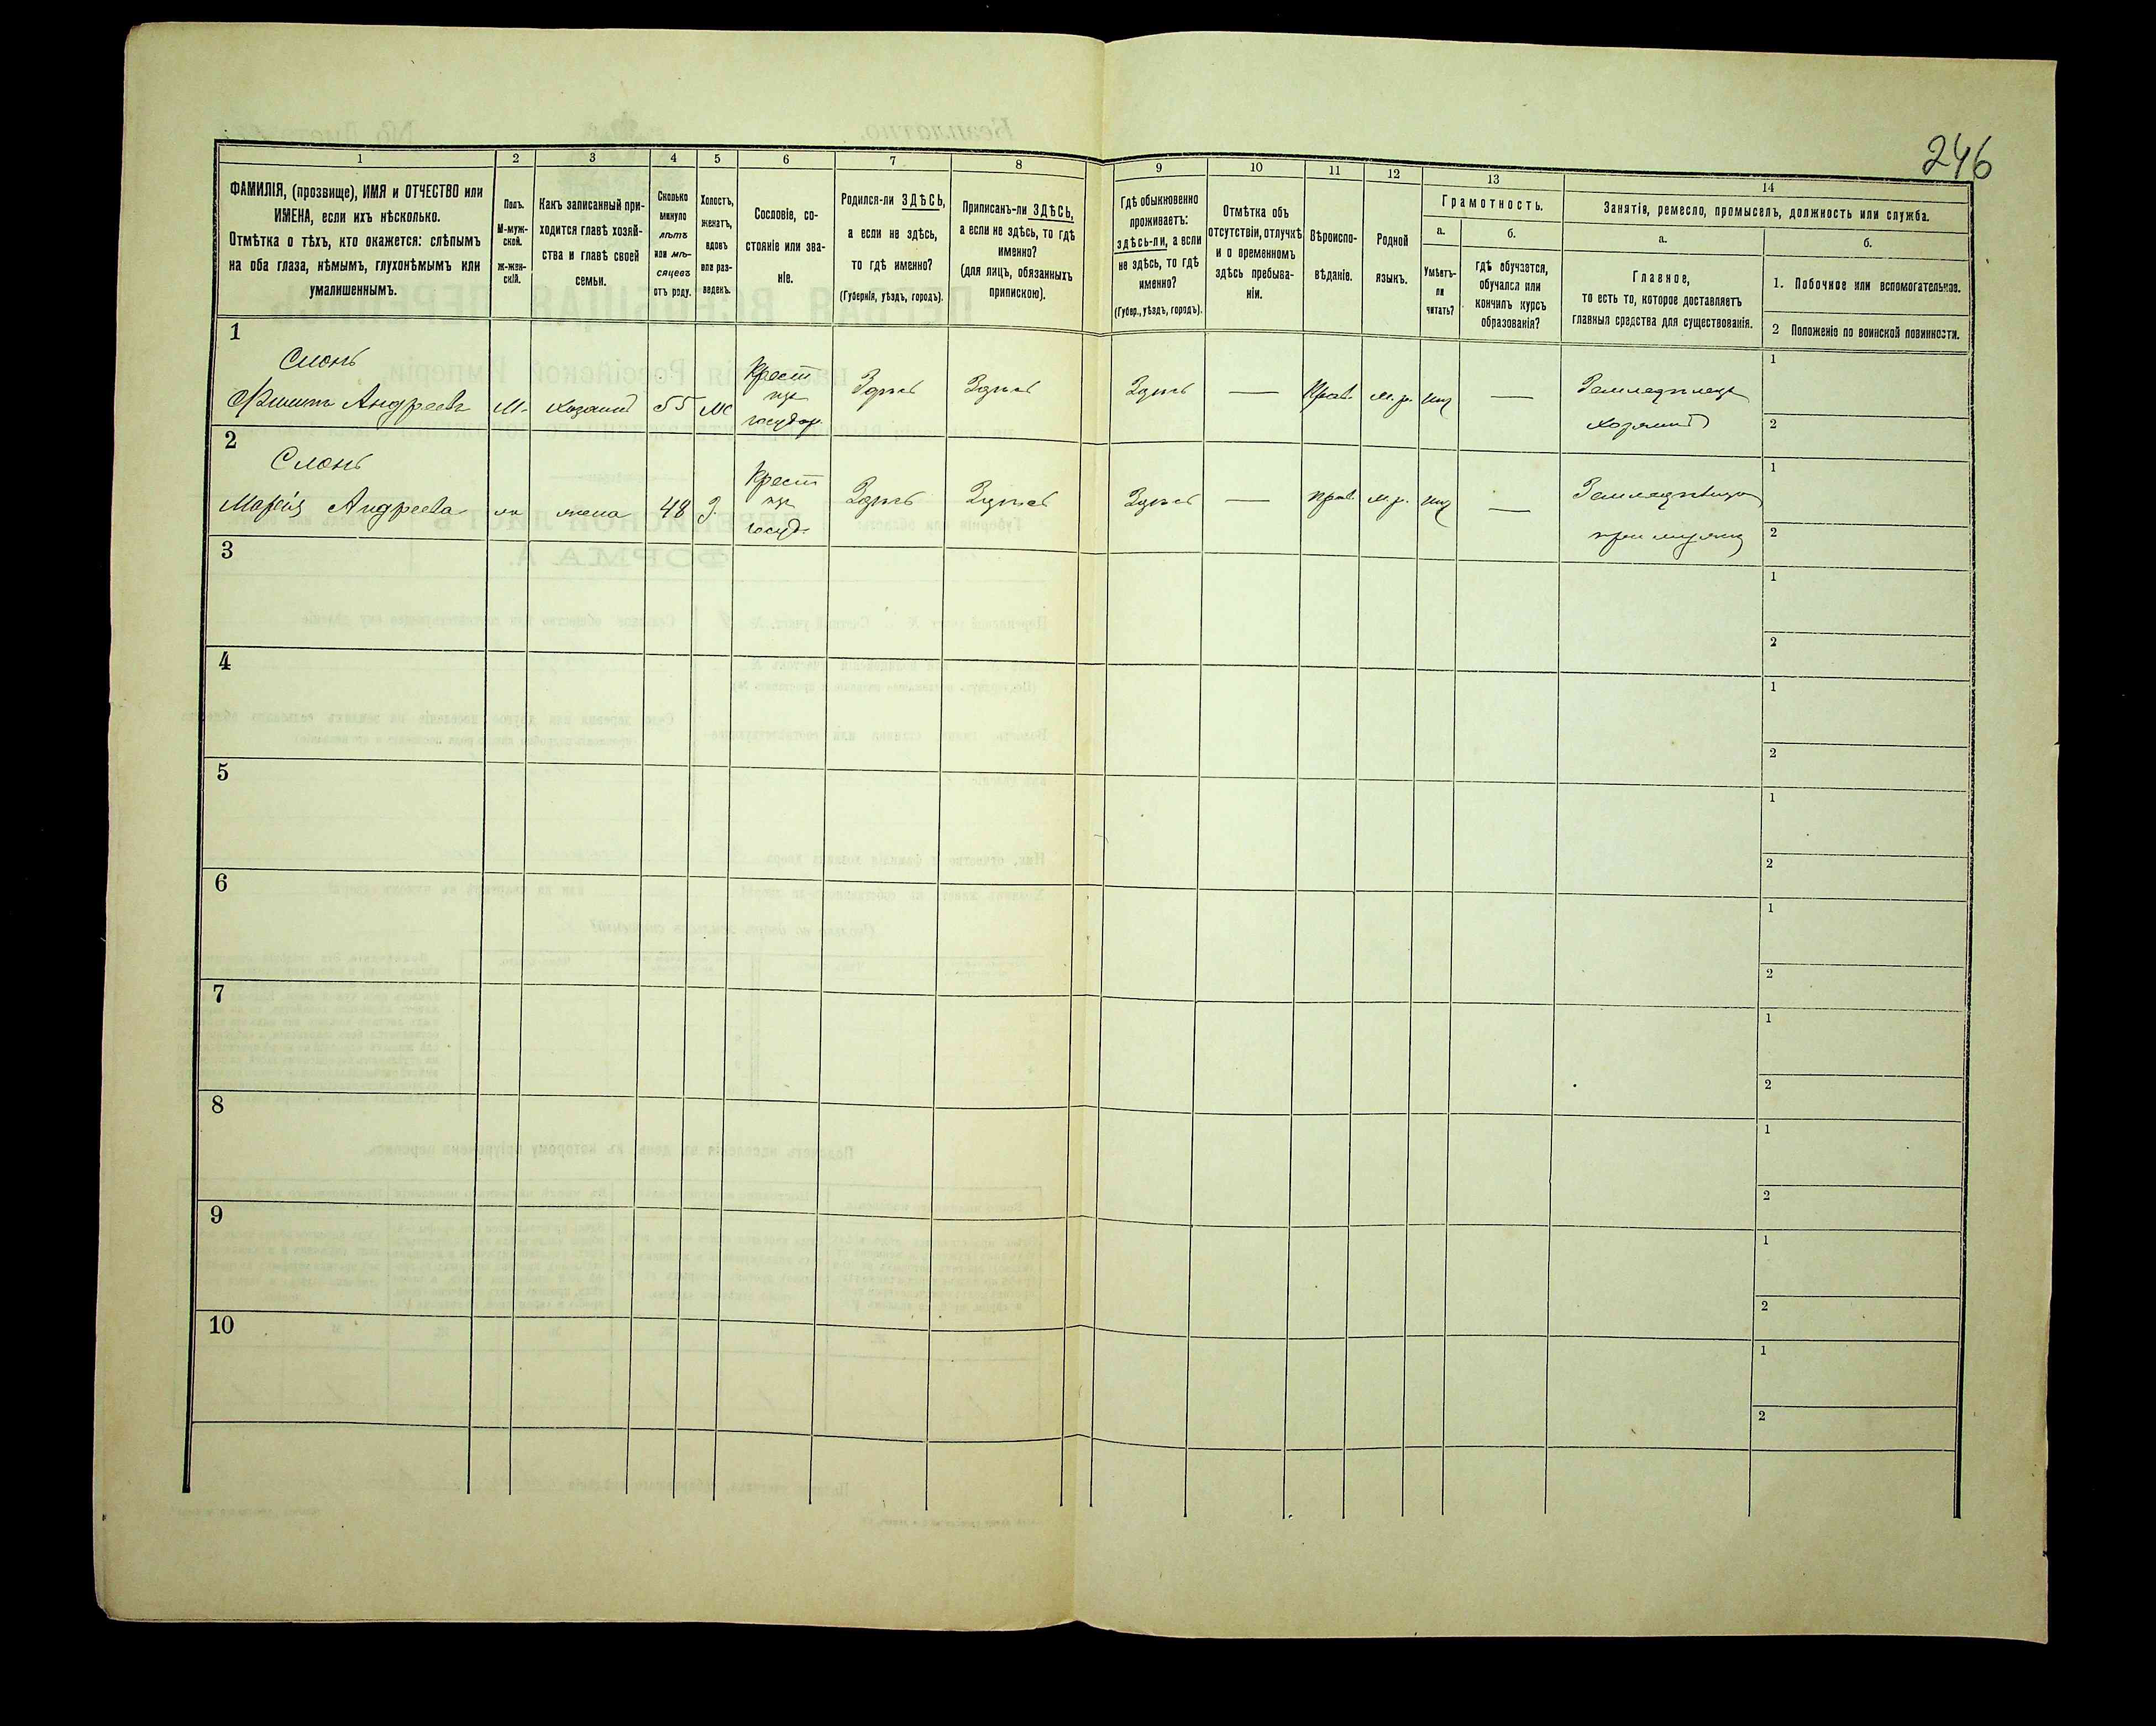 246
1
2
3
4
5
6
7
8
9
10
11
12
13
14
ФАМИЛІЯ, (прозвище), ИМЯ и ОТЧЕСТВО или
ИМЕНА, если ихъ нѣсколько.
Отмѣтка о тѣхъ, кто окажется: слѣпымъ
на оба глаза, нѣмымъ, глухонѣмымъ или
умалишеннымъ.
Полъ.
М-муж-
ской.
ж-жен-
скій.
Какъ записанный при-
ходится главѣ хозяй-
ства и главѣ своей
семьи.
Сколько
минуло
лѣтъ
или мѣ-
сяцевъ
отъ роду.
Холостъ,
женатъ,
вдовъ
или раз-
веденъ.
Сословіе, со-
стояніе или зва-
ніе.
Родился-ли ЗДѢСЬ,
а если не здѣсь,
то гдѣ именно?
(Губернія, уѣздъ, городъ).
Приписанъ-ли ЗДѢСЬ,
а если не здѣсь, то гдѣ
именно?
(для лицъ, обязанныхъ
припискою).
Гдѣ обыкновенно
проживаетъ:
здѣсь-ли, а если
не здѣсь, то гдѣ
именно?
(Губер., уѣздъ, городъ).
Отмѣтка объ
отсутствіи, отлучкѣ
и о временномъ
здѣсь пребыва-
ніи.
Вѣроиспо-
вѣданіе.
Родной
языкъ.
Грамотность.
а.
Умѣетъ-
ли
читать?
б.
гдѣ обучается,
обучался или
кончилъ курсъ
образованія?
Занятія, ремесло, промыселъ, должность или служба.
а.
Главное,
то есть то, которое доставляетъ
главныя средства для существованія.
б.
1. Побочное или вспомогательное.
2 Положеніе по воинской повинности.
1
Слонъ
Андреевъ М. хозяинъ 55 Крест государ. Здѣсь Здѣсь Здѣсь — Прав. м. р. — Земледѣлецъ хозяинъ
1
2
2
Слонъ
Марія Андреева жена 48 Крест госуд. Здѣсь Здѣсь Здѣсь — прав. м. р. —
1
2
3
1
2
4
1
2
5
1
2
6
1
2
7
1
2
8
1
2
9
1
2
10
1
2